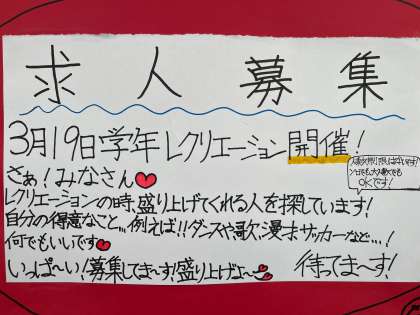 求人募集
3月19日学年レクリエーション開催！
さぁ！みなさん
人数制限はないです！
ソロでも大人数でも
OKです！
レクリエーションの時、盛り上げてくれる人を探しています！
自分の得意なこと…例えば！！ダンスや歌、漫才、サッカーなど…！
何でもいいです
いっぱ〜い！募集してま〜す！盛り上げよ〜
待ってま〜す！